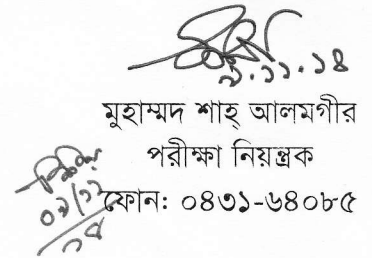 ৯.১১.১৪
মুহাম্মদ শাহ্ আলমগীর
পরীক্ষা নিয়ন্ত্রক
ফোন: ০৪৩১-৬৪০৮৫